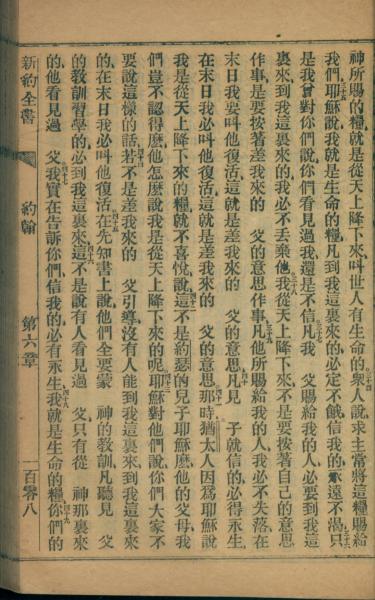 神所賜的糧就是從天上降下來、叫世人有生命的、三十四衆人說、求主常將這糧賜給
我們、三十五耶穌說、我就是生命的糧、凡到我這裏來的、必定不餓、信我的、永遠不渴、三十六只
是我曾對你們說、你們看見過我、還是不信、三十七凡我 父賜給我的人、必要到我這
裏來、到我這裏來的、我必不丟棄他、三十八我從天上降下來、不是要按著自己的意思
作事、是要按著差我來的 父的意思作事、三十九凡他所賜給我的人、我必不失落、在
末日我要叫他復活、這就是差我來的 父的意思、四十凡見 子就信的、必得永生、
在末日我必叫他復活、這就是差我來的 父的意思、四十一那時猶太人因爲耶穌說、
我是從天上降下來的糧、就不喜悅、四十二說、這不是約瑟的兒子耶穌麽、他的父母、我
們豈不認得麽、他怎麽說、我是從天上降下來的呢、四十三耶穌對他們說、你們大家不
要說這樣的話、四十四若不是差我來的 父引導、沒有人能到我這裏來、到我這裏來
的、在末日我必叫他復活、四十五在先知書上說、他們全要蒙 神的教訓、凡聽見 父
的教訓習學的、必到我這裏來、四十六這不是說有人看見過 父、只有從 神那裏來
的、他看見過 父、四十七我實在告訴你們、信我的必有永生、四十八我就是生命的糧、四十九你們的
新約全書 約翰 第六章 百零八